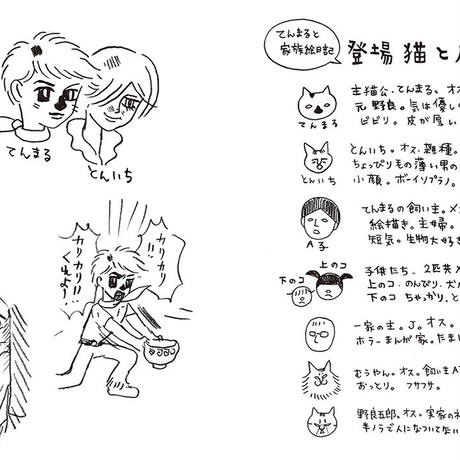 てんまると
家族絵日記
登場猫と
主猫公.てんまる。オス
元野良。気は優しく
ビビリ。皮が厚い
てんまる
とんいち。オス.雑種。
ちょっぴり毛の薄い男の
小顔。ボーイソプラノ。
とんいち
てんまるの飼い主。メ
絵描き。主婦。
短気。生物大好き
A子
上のコ
下のコ
子供たち。2匹共メ
上のコ.のんびり.犬が
下のコ ちゃっかり。と
一家の主。J。オス。
ホラーまんが家。たまに
むうやん。オス。飼い主A
おっとり。フサフサ。
野良五郎、オス。実家の
半ノラで人になついてない
てんまる
とんいち
カリカリ!!
カリカリ
くれよ〜